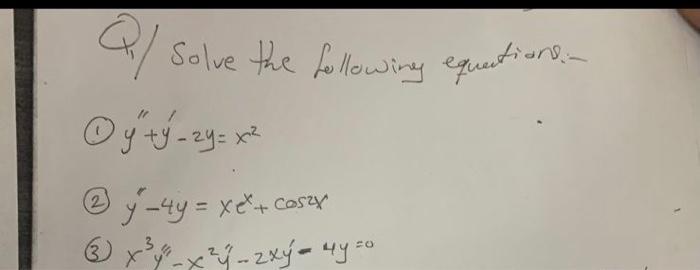 Q/ Solve the following equations:-
① y'' + y' - 2y = x²
② y'' - 4y = xeˣ + cos2x
③ x³y''' - x²y'' - 2xy' - 4y = 0